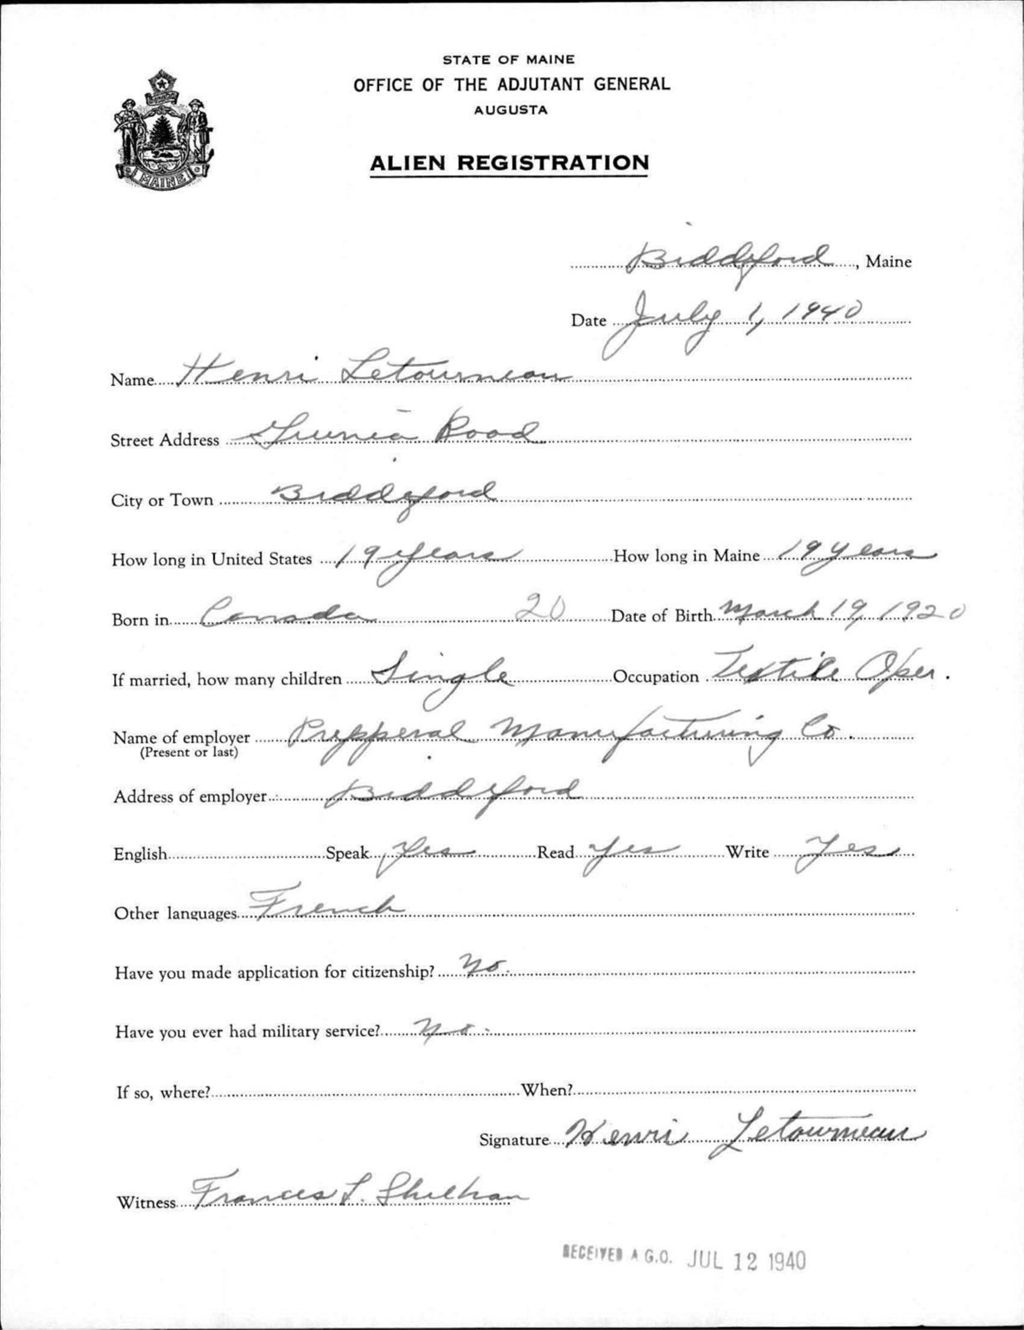 STATE OF MAINE
OFFICE OF THE ADJUTANT GENERAL
AUGUSTA
ALIEN REGISTRATION
MAINE
Biddeford, Maine
Date July 1, 1940
Name Henri Letourneau
Street Address Road
City or Town Biddeford
How long in United States 19 years How long in Maine 19 years
Born in Canada 20 Date of Birth March 19, 1920
If married, how many children Single Occupation Textile Oper.
Name of employer Manufacturing Co.
(Present or last)
Address of employer Biddeford
English Speak Yes Read Yes Write Yes
Other languages French
Have you made application for citizenship? No.
Have you ever had military service? No.
If so, where? When?
Signature Henri Letourneau
Witness Frances L.
RECEIVED A.G.O. JUL 12 1940